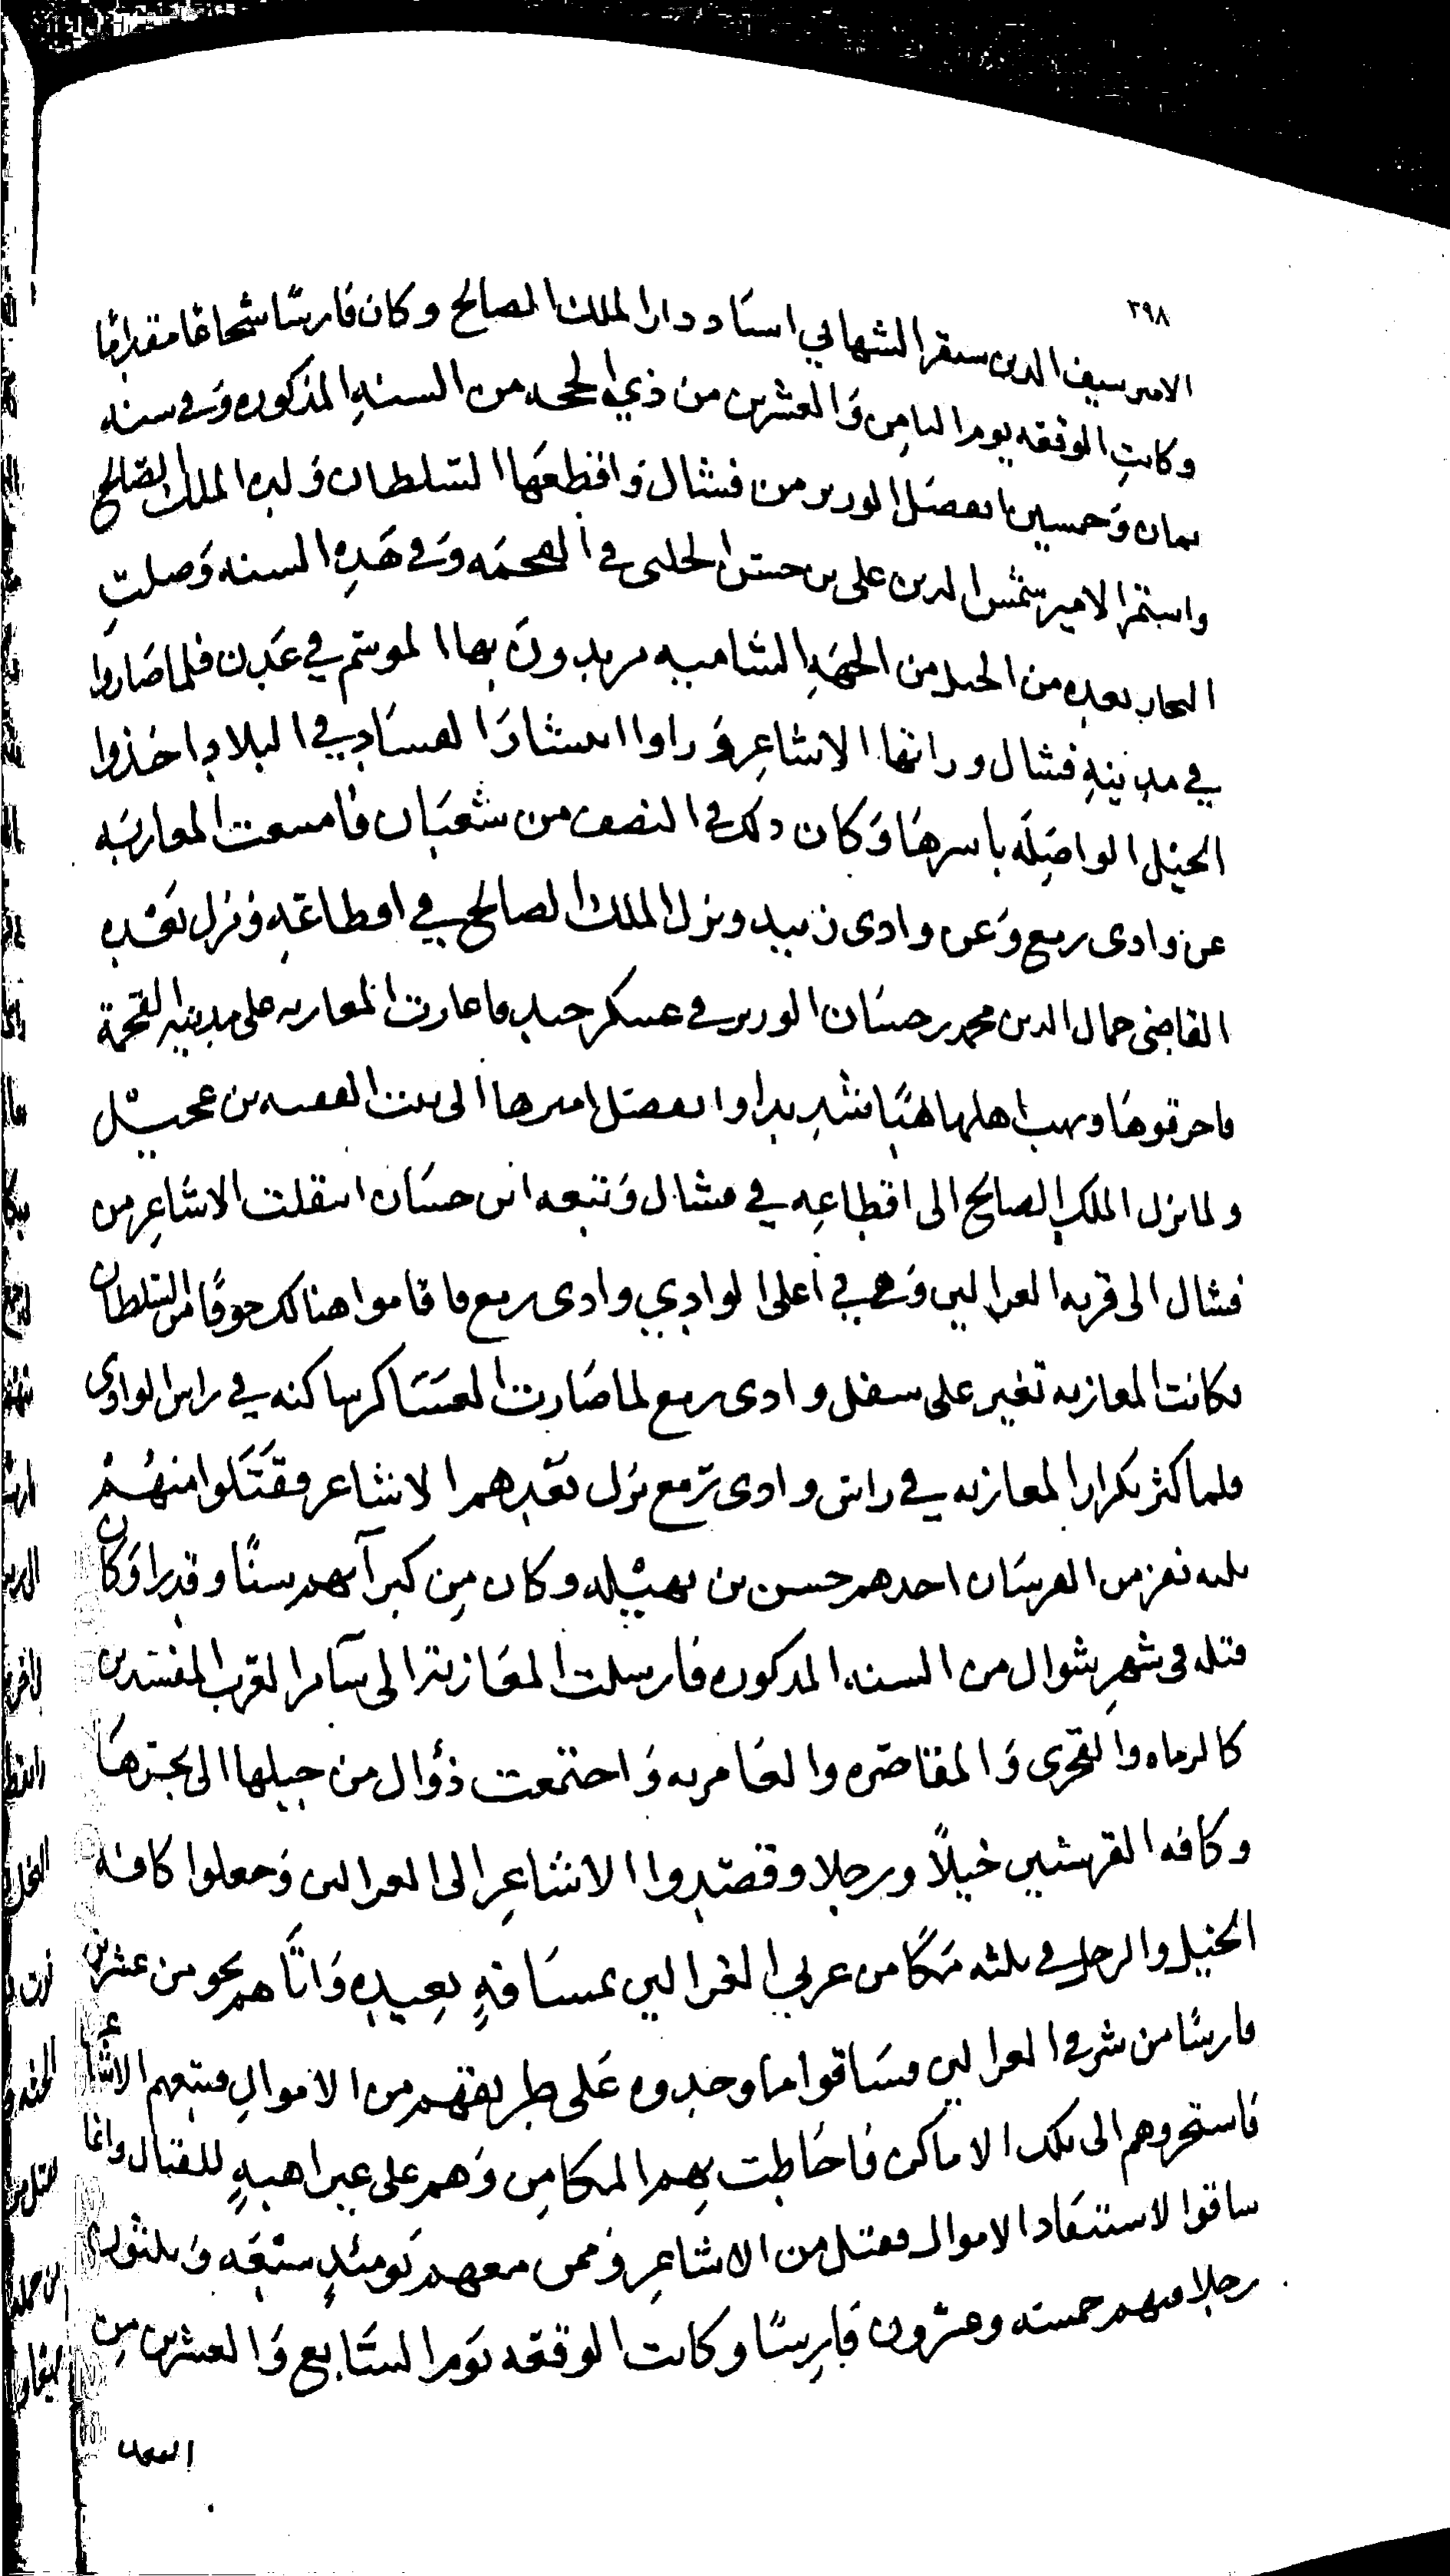 ٣٩٨
الامير سيف الدين سنقر الشهابي استاد دار الملك الصالح وكان فارسًا شجاعًا مقدامًا
وكانتِ الوقعه يوم الثامن وَالعشرين من ذي الحجه من السنهِ المذكوره وَفي سنه
ثمان وَخمسين انفصَل الوزير من فشال وَاقطعَها السّلطان وَلده الملك الصّالح
واستمرّ الامير شمس الدين على بن حسن الحلبى في القحمَه وَفي هَذِه السنه وَصلتِ
التجار بعده من الخيل من الجهَهِ الشاميه يريدونَ بها الموسَم في عَدن فلما صَاروا
في مدينهِ فشال ورانها الاشاعِر وَراوا انتشارَ الفسَادِ في البلاد اخذوا
الخيْل الواصِلَه باسرهَا وَكان ذلك في النصف من شعبَان فامسعت المعازبَه
عن وادى رمع وَعن وادى زبيد ونزل الملك الصالح في اقطاعَهِ وَنزل بَعْده
القاضِى جمال الدين محمد بن حسَان الوزير في عسكر جيد فاغارت المعازبه على مدينه القحمة
فاحرقوهَا ونهب اهلها نهبًا شديدا وانفصَل اميرها الى بيت الفقيه بن عجيْل
ولما نزل الملك الصالح الى اقطاعِه في فشال وَتبعه ابن حسَان انتقلت الاشاعِر من
فشال الى قريه العرالين وَهي في أعلى الوادِي وادى رمع فاقاموا هنالك خوفًا من السّلطان
فكانت المعازبه تغير على سفل وادى رمع لما صَارت العسَاكر ساكنه في راس الوادى
فلما كثر تكرار المعازبه في راس وادى رمع نزل بَعْدهم الاشاعر فقَتَلوا منهُمْ
ثلثه نفر من الفرسَان احدهم حسن بن بهيْله وكان مِن كبرآئهم سنًّا وقدرا وَكان
قتله فى شهرِ شوال من السنه المذكوره فارسلت المعَازبة الى سآئر العَرب المفسدين
كالرماه والقحرى وَالمقاصَره والعَامريه وَاجتمعت ذؤال من جبلها الى بحرهَا
وكافه القرشيين خيلاً ورجلا وقصَدوا الاشاعِر الى العرالين وَجعلوا كافه
الخيْل والرجل في ثلثه مَكامن عربي العرالين بمسَافهٍ بعِيده وَاتَاهم نحو من عشرين
فارسًا من شرقى العرالين فسَاقوا ما وجدوه عَلى طريقهم من الاموالِ فتبعهم الاشاعر
فاستجروهم الى تلك الاماكن فاحَاطت بهم المكامِن وَهم على غير اهبهٍ للقتال وانما
ساقوا لاستنقاد الاموال فقتل من الاشاعِر وَممن معهم يَومئدٍ سبْعَه وَثلثون
رجلا منهم خمسه وعشرون فارِسًا وكانت الوقعه يَوم السَّابِع وَالعشرين مِن
القعده